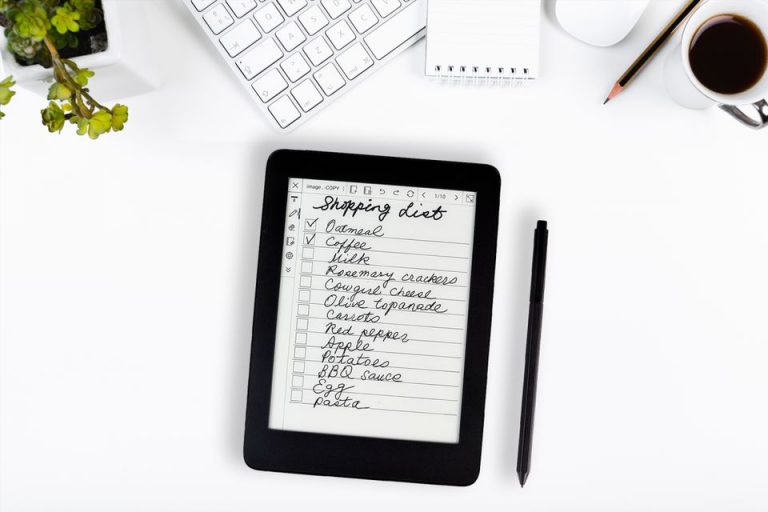 image. -COPY 1/10
Shopping List
Oatmeal
Coffee
Milk
Rosemary crackers
Cowgirl cheese
Olive topanade
Carrots
Red pepper
Apple
Potatoes
BBQ sauce
Egg
Pasta